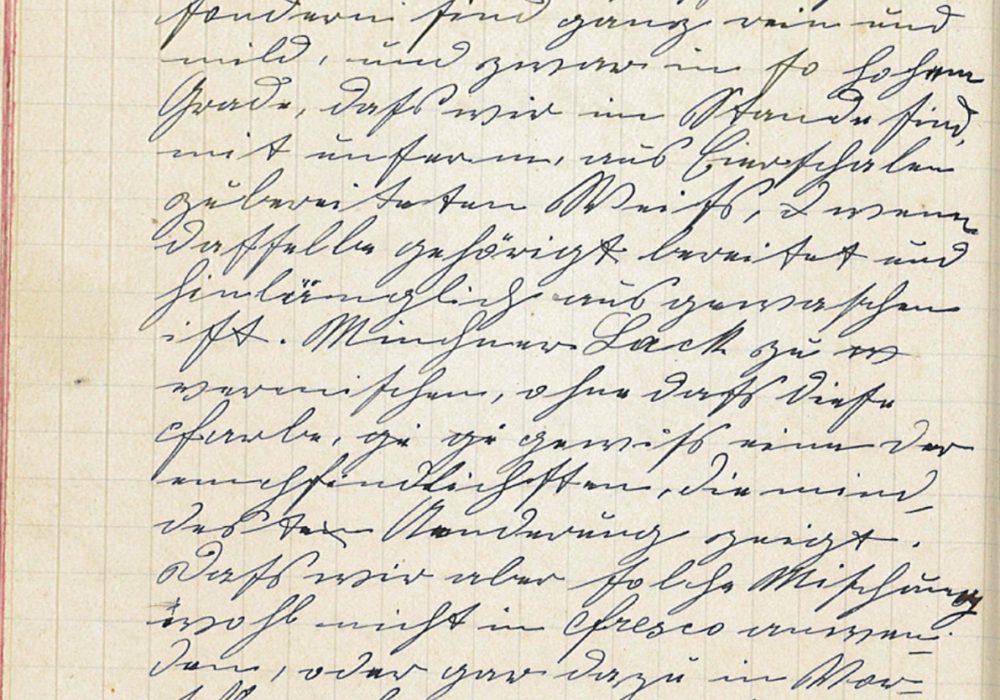 sondern sind ganz rein und
mild, und zwar in so hohem
Grade, daſs wir im Stande sind,
mit unserm, aus Eierschalen
zubereiteten Weiſs, & wenn
dasselbe gehörigt bereitet und
hinlänglich ausgewaschen
ist. Münchner Lack zu
vermischen, ohne daſs diese
Farbe, gewiſs eine der
empfindlichsten, die mind
desten Aenderung zeigt.
Daſs wir aber solche Mischung
wohl nicht in Fresco anwen
den, oder gar dazu in Vor